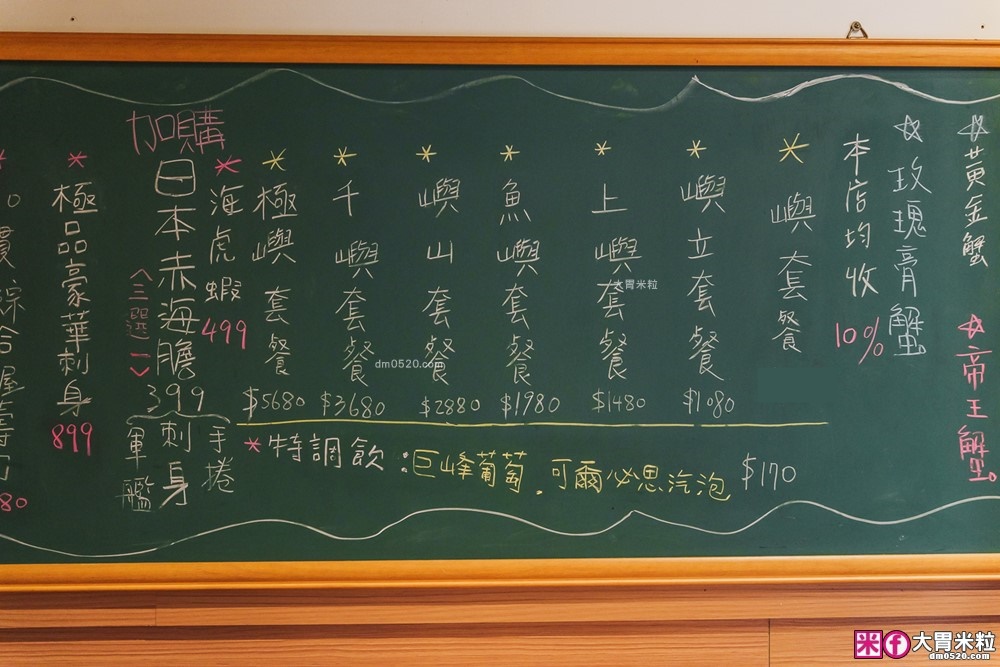 ☆黃金蟹
☆帝王蟹。
☆玫瑰膏蟹。
本店均收10%
*嶼套餐
*嶼立套餐
$1080
*上嶼套餐
$1480
*魚嶼套餐
$1980
*嶼山套餐
$2880
*千嶼套餐
$3680
*極嶼套餐
$5680
*特調飲:巨峰葡萄.可爾必思汽泡 $170
加購
*海虎蝦499
日本赤海膽399
<三選一>
手捲
刺身
軍艦
*極品豪華刺身899
貫綜合握壽司
80
大胃米粒
dm0520.com
米f大胃米粒
dm0520.com